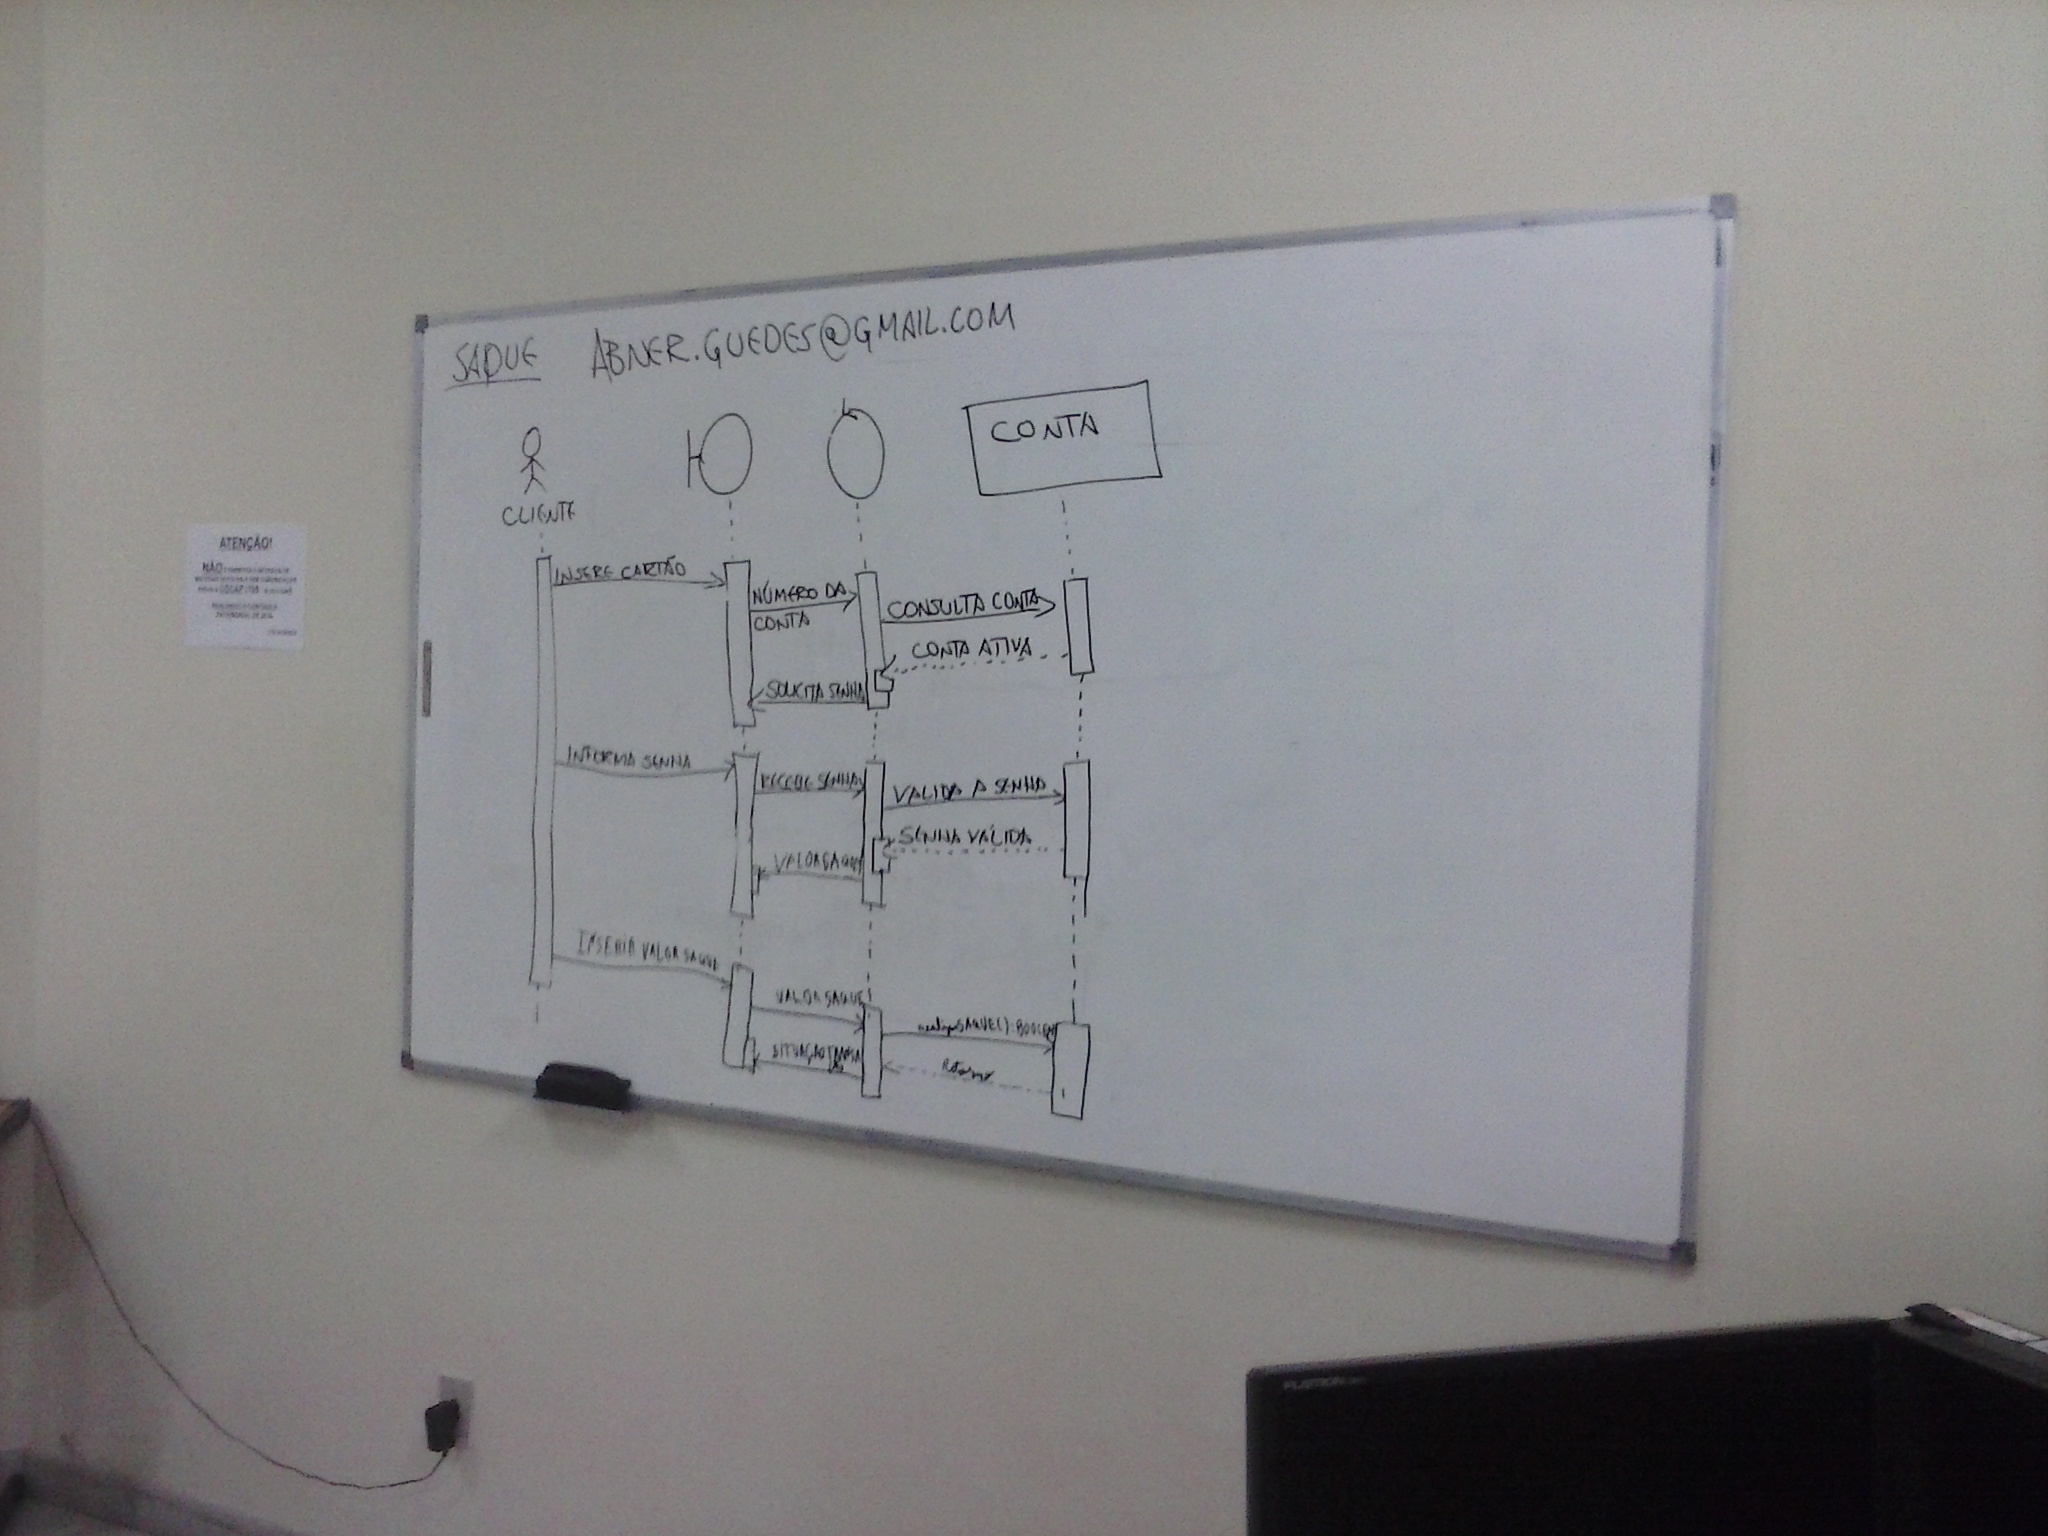 SAQUE ABNER.GUEDES@GMAIL.COM
CONTA
CLIENTE
INSERE CARTÃO
NÚMERO DA
CONTA
CONSULTA CONTA
CONTA ATIVA
SOLICITA SENHA
INFORMA SENHA
RECEBE SENHA
VALIDA A SENHA
SENHA VÁLIDA
VALOR SAQUE
INSERIR VALOR SAQUE
VALOR SAQUE
SAQUE():
SITUAÇÃO
Retorno
ATENÇÃO!
NÃO